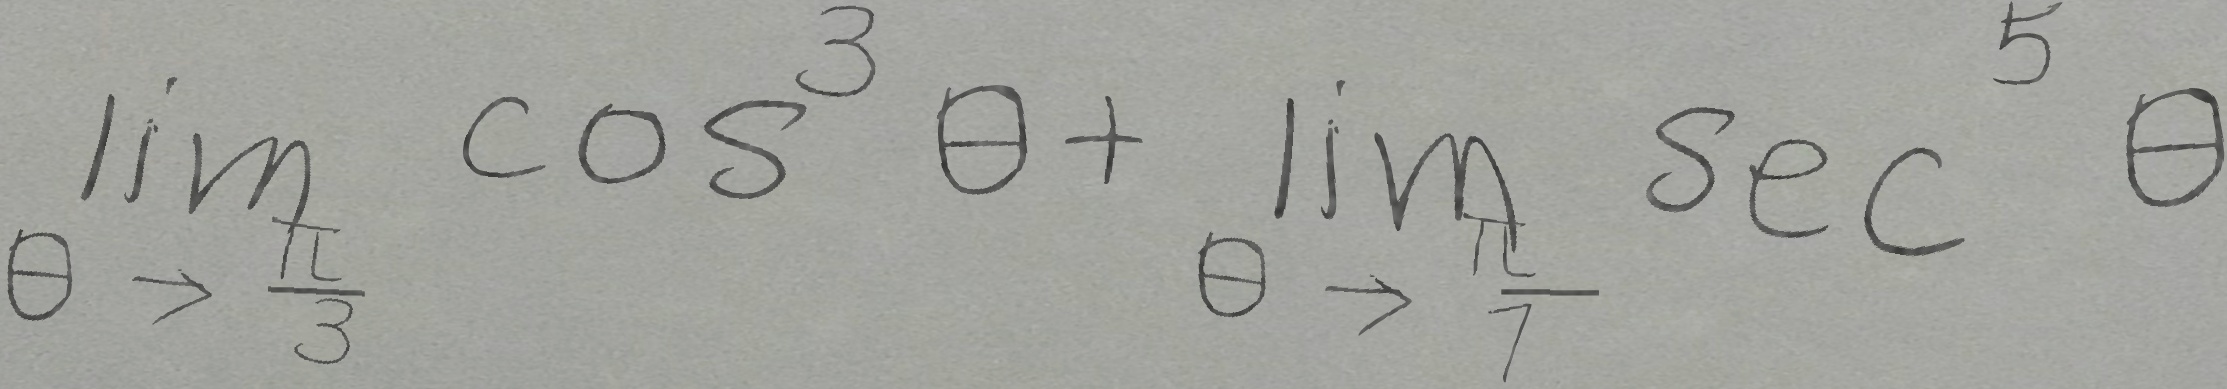 \lim_{\theta \to \frac{\pi}{3}} \cos^3 \theta + \lim_{\theta \to \frac{\pi}{7}} \sec^5 \theta